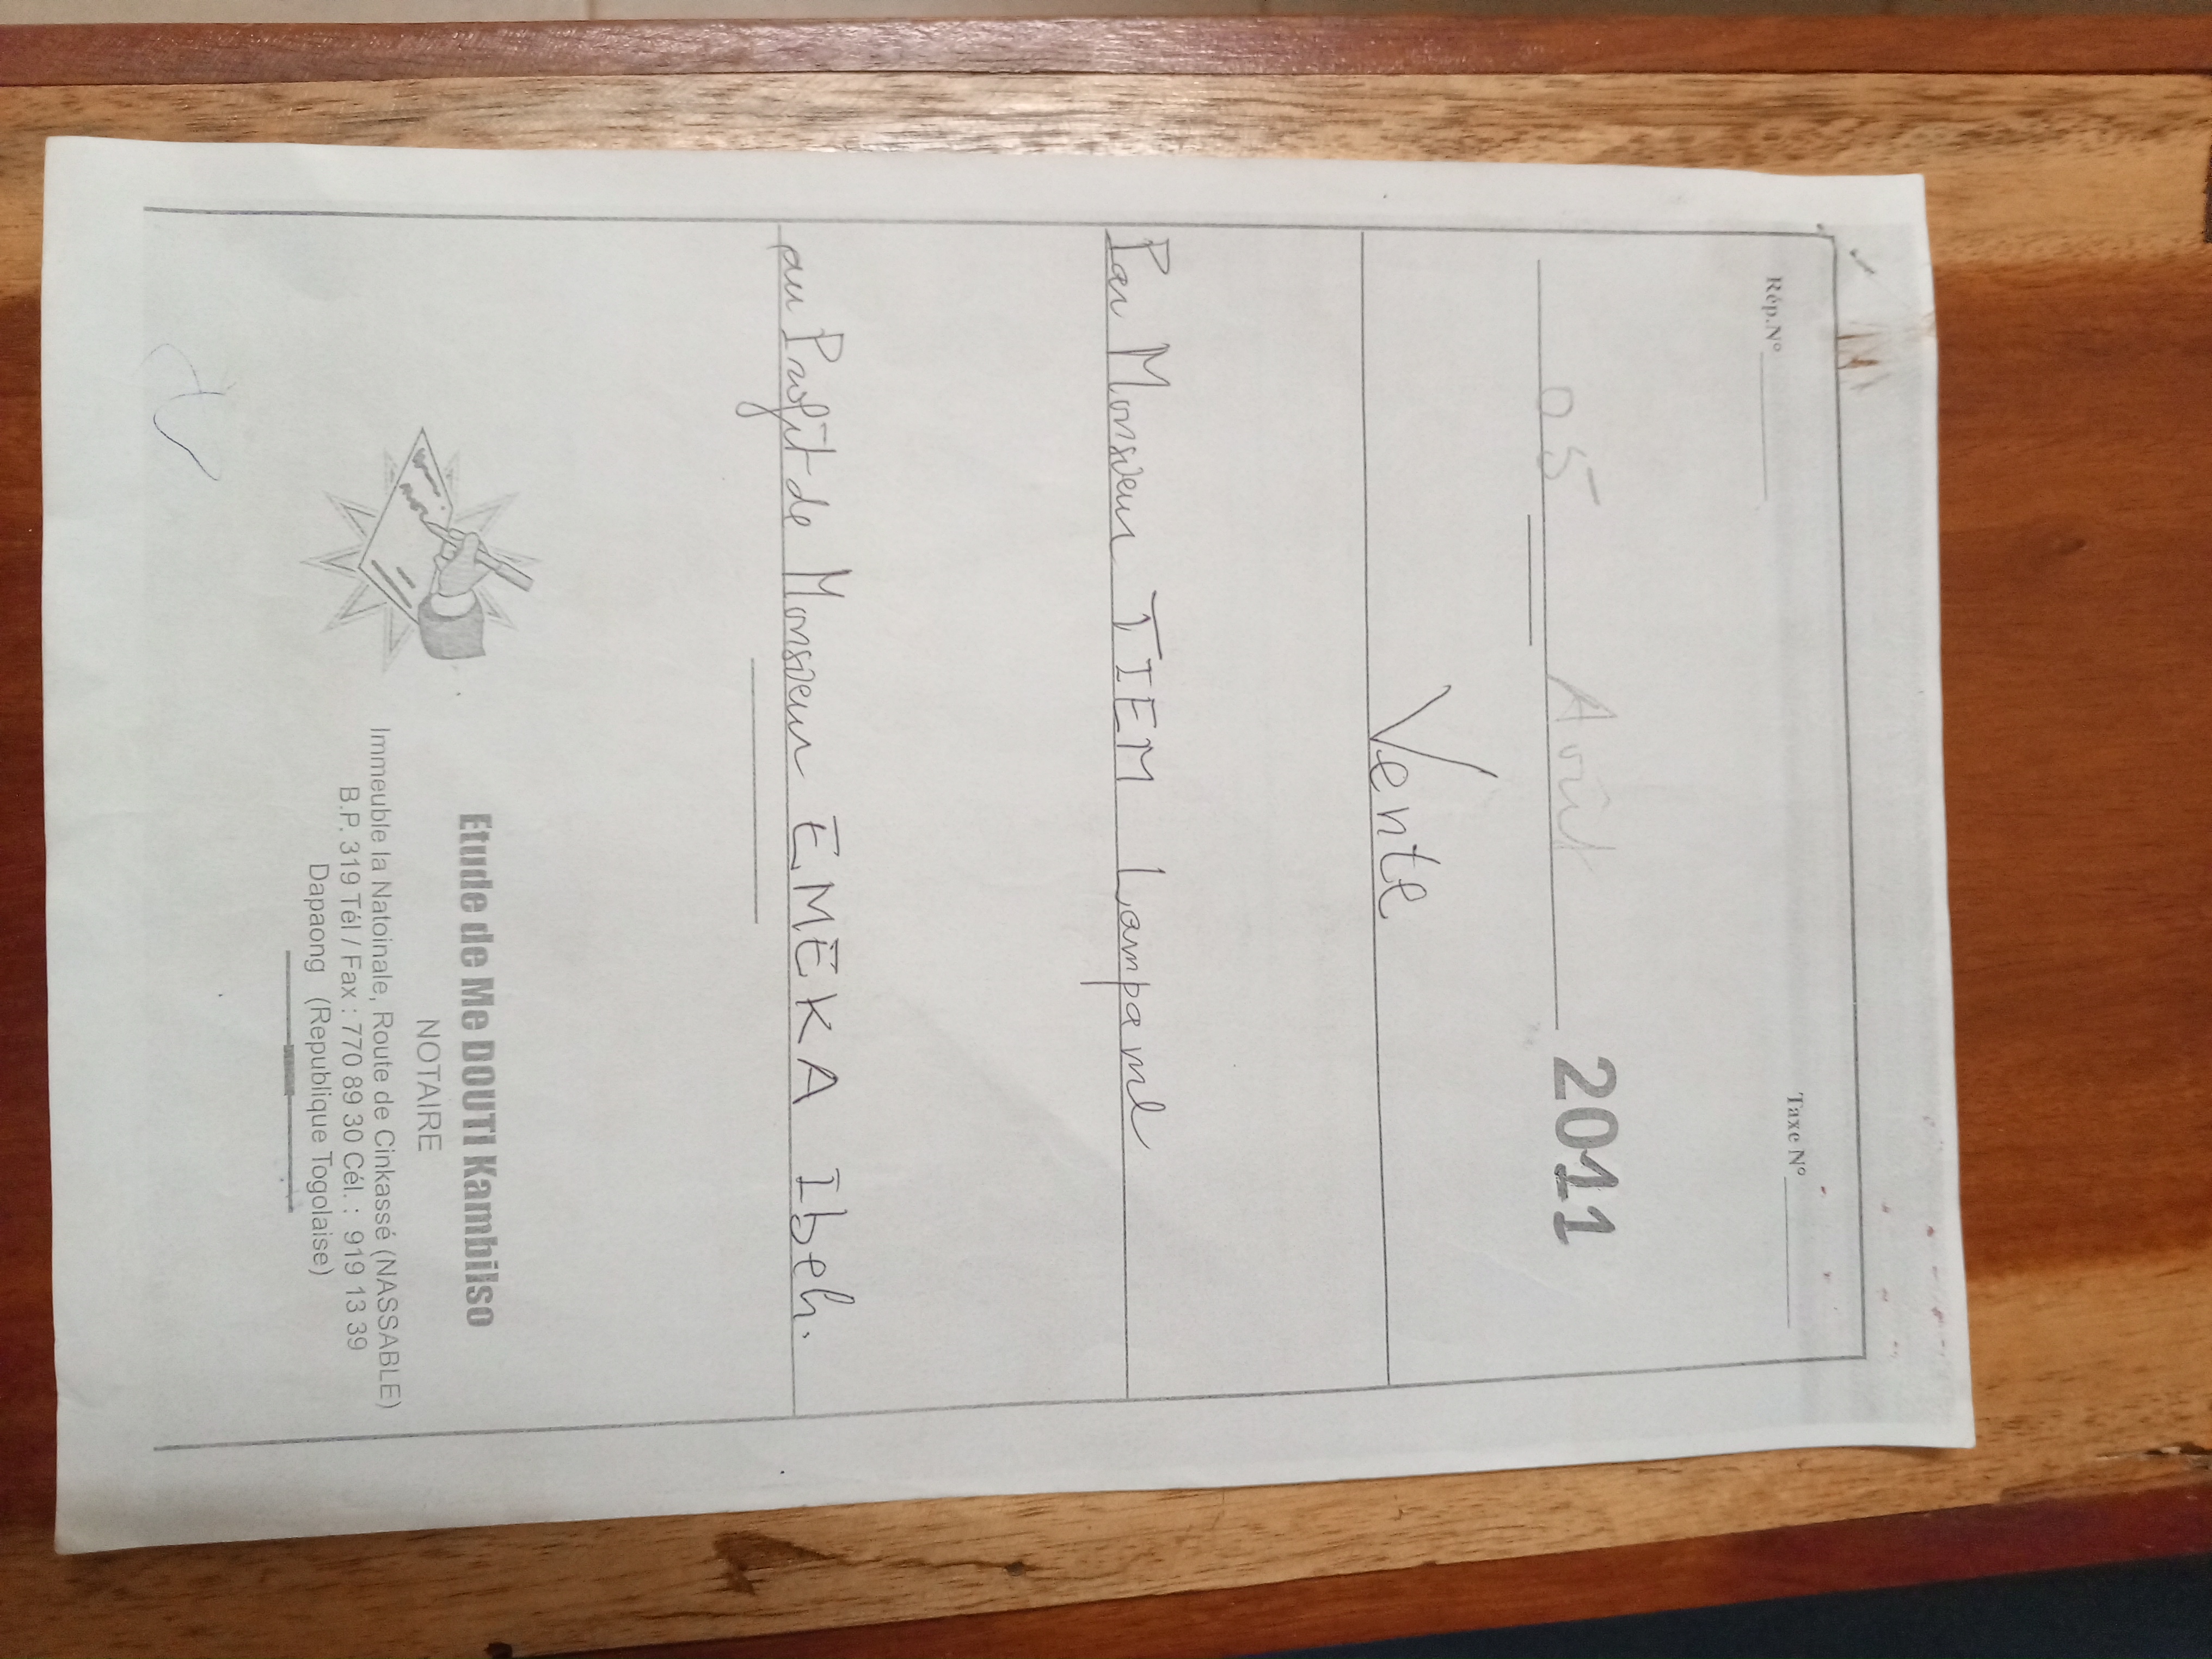 Rép.N° Taxe N°
05 Août 2011
Vente
Par Monsieur TIEM Lampanl
au Profit de Monsieur EMEKA Ibeh.
Etude de Me DOUTI Kambilso
NOTAIRE
Immeuble la Natoinale, Route de Cinkassé (NASSABLE)
B.P. 319 Tél / Fax : 770 89 30 Cél. : 919 13 39
Dapaong (Republique Togolaise)